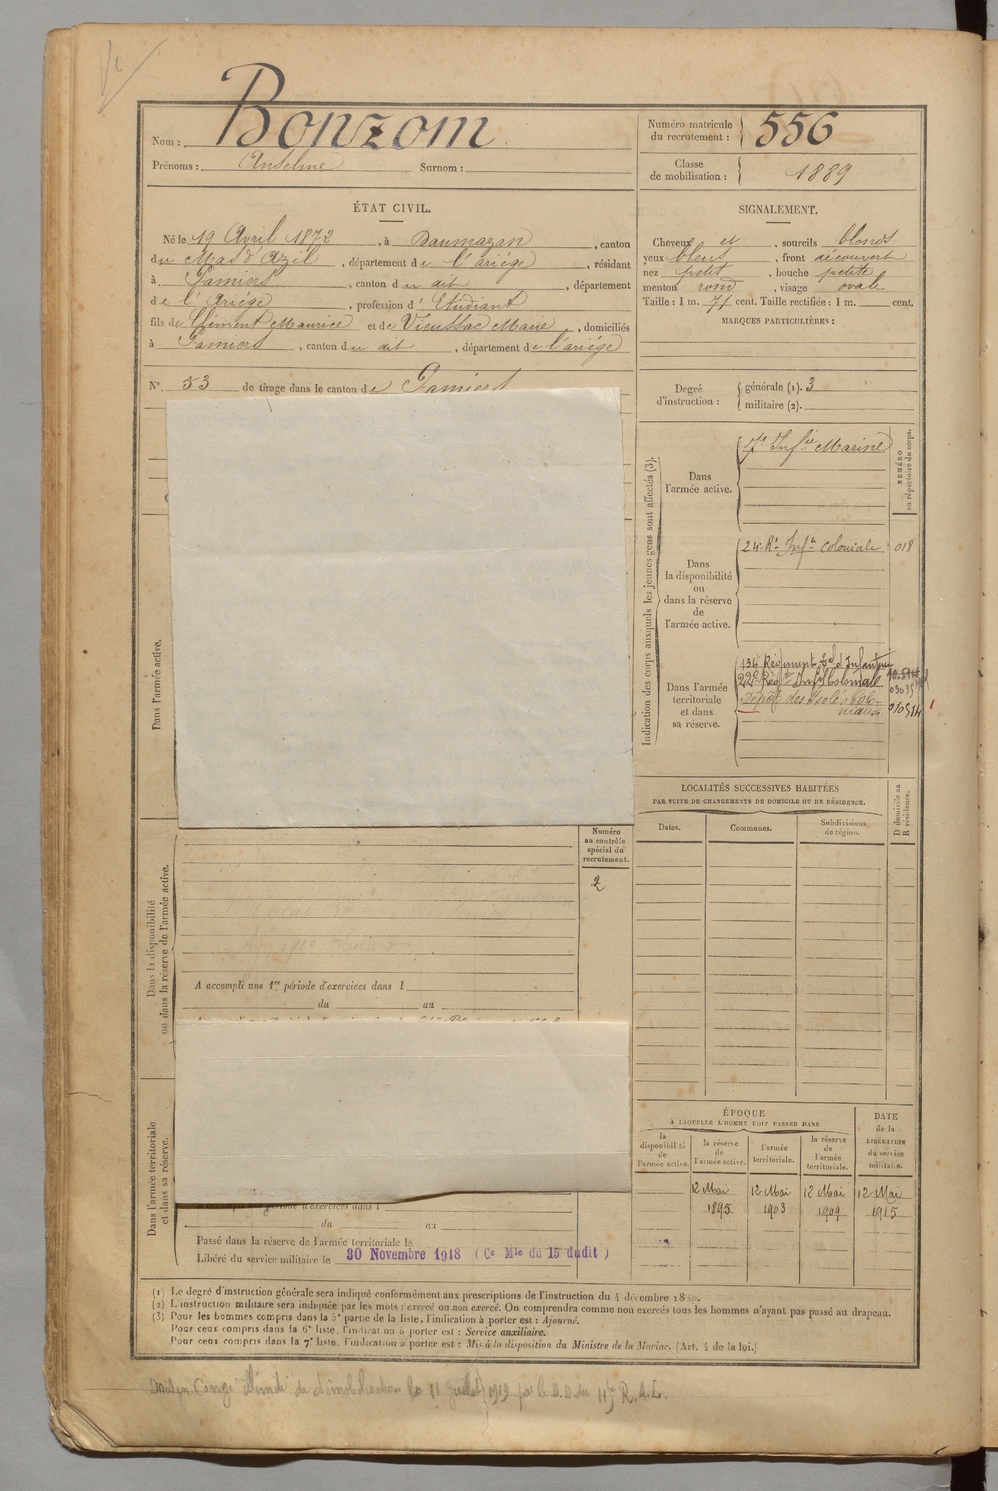 Nom : Bonzom
Prénoms : Anselme Surnom :
Numéro matricule du recrutement : 556
Classe de mobilisation : 1889
ÉTAT CIVIL.
Né le 19 Avril 1872, à Daumazan, canton
du Mas d'Azil, département de l'ariège, résidant
à Pamiers, canton du dit, département
de l'Ariège, profession d'Etudiant
fils de Clément Maurice et de Vieussac Marie, domiciliés
à Pamiers, canton du dit, département de l'ariège
N° 53 de tirage dans le canton de Pamiers
SIGNALEMENT.
Cheveux et, sourcils blonds
yeux bleus, front découvert
nez petit, bouche petite
menton rond, visage ovale
Taille : 1 m. 71 cent. Taille rectifiée : 1 m. cent.
MARQUES PARTICULIÈRES :
Degré d'instruction : générale (1). 3
militaire (2).
Indication des corps auxquels les jeunes gens sont affectés (3).
NUMÉRO
au répertoire du corps.
Dans
l'armée active.
7e Inf.ie Marine
Dans
la disponibilité
ou
dans la réserve
de
l'armée active.
24e Rt Inf.ie Coloniale 018
Dans l'armée
territoriale
et dans
sa réserve.
134 Régiment d'Infanterie
22e Régt Inf.ie Coloniale
Dépôt des Isolés Colo-
niaux
LOCALITÉS SUCCESSIVES HABITÉES
PAR SUITE DE CHANGEMENTS DE DOMICILE OU DE RÉSIDENCE.
Dates.
Communes.
Subdivisions
de région.
D domicile ou
R résidence.
Dans l'armée active.
Dans la disponibilité
ou dans la réserve de l'armée active.
Numéro
au contrôle
spécial du
recrutement.
2
A accompli une 1re période d'exercices dans l
du au
Dans l'armée territoriale
et dans sa réserve.
du au
Passé dans la réserve de l'armée territoriale le
Libéré du service militaire le 30 Novembre 1918 (Ce Mle du 15 dudit)
ÉPOQUE
À LAQUELLE L'HOMME DOIT PASSER DANS
la
disponibilité
de
l'armée active.
la réserve
de
l'armée active.
l'armée
territoriale.
la réserve
de
l'armée
territoriale.
DATE
de la
LIBÉRATION
du service
militaire.
12 Mai 12 Mai 12 Mai 12 Mai
1895 1903 1909 1915
(1) Le degré d'instruction générale sera indiqué conformément aux prescriptions de l'Instruction du 4 décembre 1889.
(2) L'instruction militaire sera indiquée par les mots : exercé ou non exercé. On comprendra comme non exercés tous les hommes n'ayant pas passé au drapeau.
(3) Pour les hommes compris dans la 5e partie de la liste, l'indication à porter est : Ajourné.
Pour ceux compris dans la 6e liste, l'indication à porter est : Service auxiliaire.
Pour ceux compris dans la 7e liste, l'indication à porter est : Mis à la disposition du Ministre de la Marine. (Art. 4 de la loi.)
Congé illimité de démobilisation le 11 juillet 1919 par le D.D du